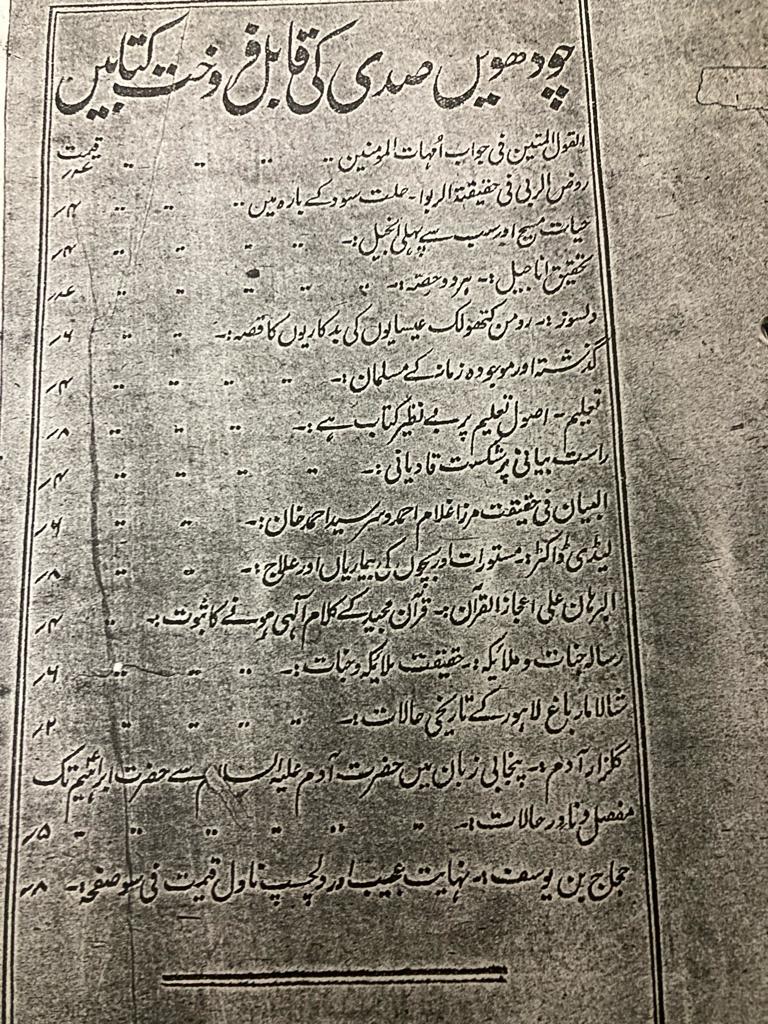 چودھویں صدی کی قابل فروخت کتابیں
القول المتین فی جواب اُمہات المومنین .. .. .. .. قیمت
روض الربی فی حقیقۃ الربوا۔ حلت سود کے بارہ میں .. .. .. ۴؍
حیات مسیح اور سب سے پہلی انجیل:۔ .. .. .. .. ۴؍
تحقیق اناجیل:۔ ہر دو حصہ:۔ .. .. .. ..
دلسوز:۔ رومن کتھولک عیسایوں کی بدکاریوں کا قصہ:۔ .. .. .. ۶؍
گذشتہ اور موجودہ زمانہ کے مسلمان:۔ .. .. .. .. ۴؍
تعلیم۔ اصول تعلیم پر بے نظیر کتاب ہے:۔ .. .. .. .. ۸؍
راست بیانی پر شکست قادیانی:۔ .. .. .. .. ۴؍
البیان فی حقیقت مرزا غلام احمد و سر سید احمد خان:۔ .. .. .. ۶؍
لیڈی ڈاکٹر:۔ مستورات اور بچوں کی بیماریاں اور علاج:۔ .. .. .. ۸؍
البرہان علی اعجاز القرآن:۔ قرآن مجید کے کلام آلہی ہونے کا ثبوت:۔ .. ۴؍
رسالہ جنات و ملایکہ:۔ حقیقت ملایکہ و جنات:۔ .. .. .. .. ۶؍
شالامار باغ لاہور کے تاریخی حالات:۔ .. .. .. .. ۲؍
گلزار آدم:۔ پنجابی زبان میں حضرت آدم علیہ السلام سے حضرت ابراہیم تک
مفصل و نادر حالات:۔ .. .. .. .. .. .. ۵؍
حجاج بن یوسف:۔ نہایت عجیب اور دلچسپ ناول قیمت فی سو صفحہ:۔ ۸؍